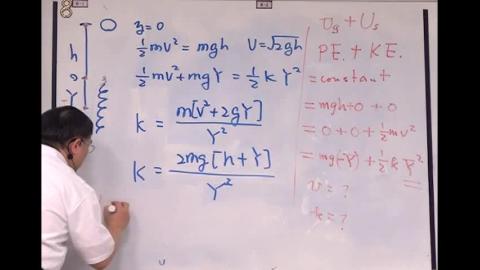 8
h
0
-Y
y=0
½mv² = mgh   V=√2gh
½mv²+mgY = ½ k Y²
k = m[v²+2gY] / Y²
k = 2mg[h+Y] / Y²
Ug + Us
PE. + KE.
= constant
= mgh+0 + 0
= 0 + 0 + ½mv²
= mg(-Y) + ½ k Y²
v = ?
k = ?